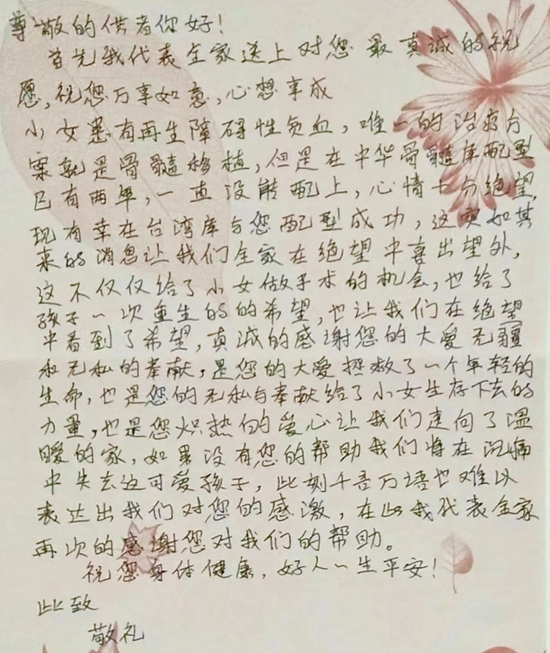 尊敬的供者你好！
首先我代表全家送上对您最真诚的祝
愿，祝您万事如意，心想事成
小女患有再生障碍性贫血，唯一的治疗方
案就是骨髓移植，但是在中华骨髓库配型
已有两年，一直没能配上，心情十分绝望，
现有幸在台湾库与您配型成功，这突如其
来的消息让我们全家在绝望中喜出望外，
这不仅仅给了小女做手术的机会，也给了
孩子一次重生的的希望，也让我们在绝望
中看到了希望，真诚的感谢您的大爱无疆
和无私的奉献，是您的大爱拯救了一个年轻的
生命，也是您的无私与奉献给了小女生存下去的
力量，也是您炽热的爱心让我们走向了温
暖的家，如果没有您的帮助我们将在沉痛
中失去这可爱孩子，此刻千言万语也难以
表达出我们对您的感激，在此我代表全家
再次的感谢您对我们的帮助。
祝您身体健康，好人一生平安！
此致
敬礼